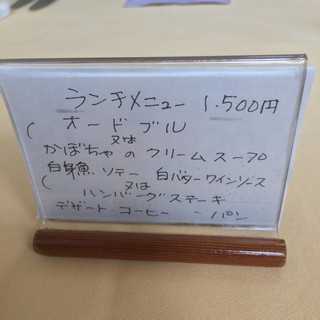 ランチメニュー 1.500円
( オードブル
又は
かぼちゃのクリームスープ
白身魚 ソテー 白バターワインソース
( 又は
ハンバーグステーキ
デザート・コーヒー ・パン